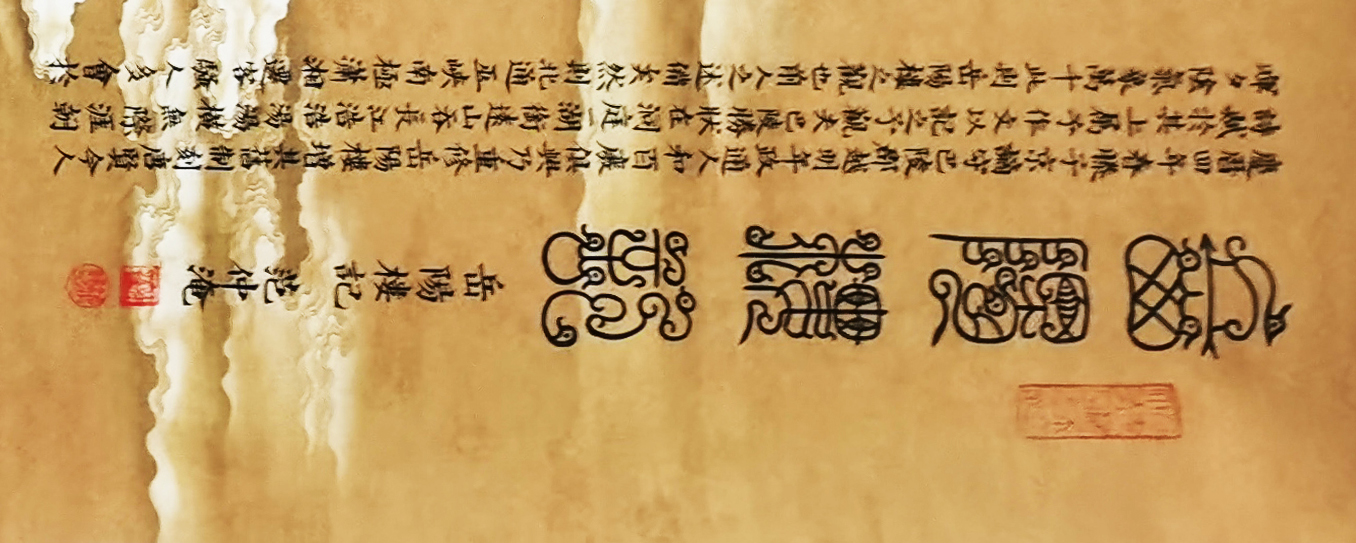 岳陽樓記 范仲淹
慶曆四年春滕子京謫守巴陵郡越明年政通人和百廢俱興乃重修岳陽樓增其舊制刻唐賢今人
詩賦於其上屬予作文以記之予觀夫巴陵勝狀在洞庭一湖銜遠山吞長江浩浩湯湯橫無際涯朝
暉夕陰氣象萬千此則岳陽樓之觀也前人之述備矣然則北通巫峽南極瀟湘遷客騷人多會於